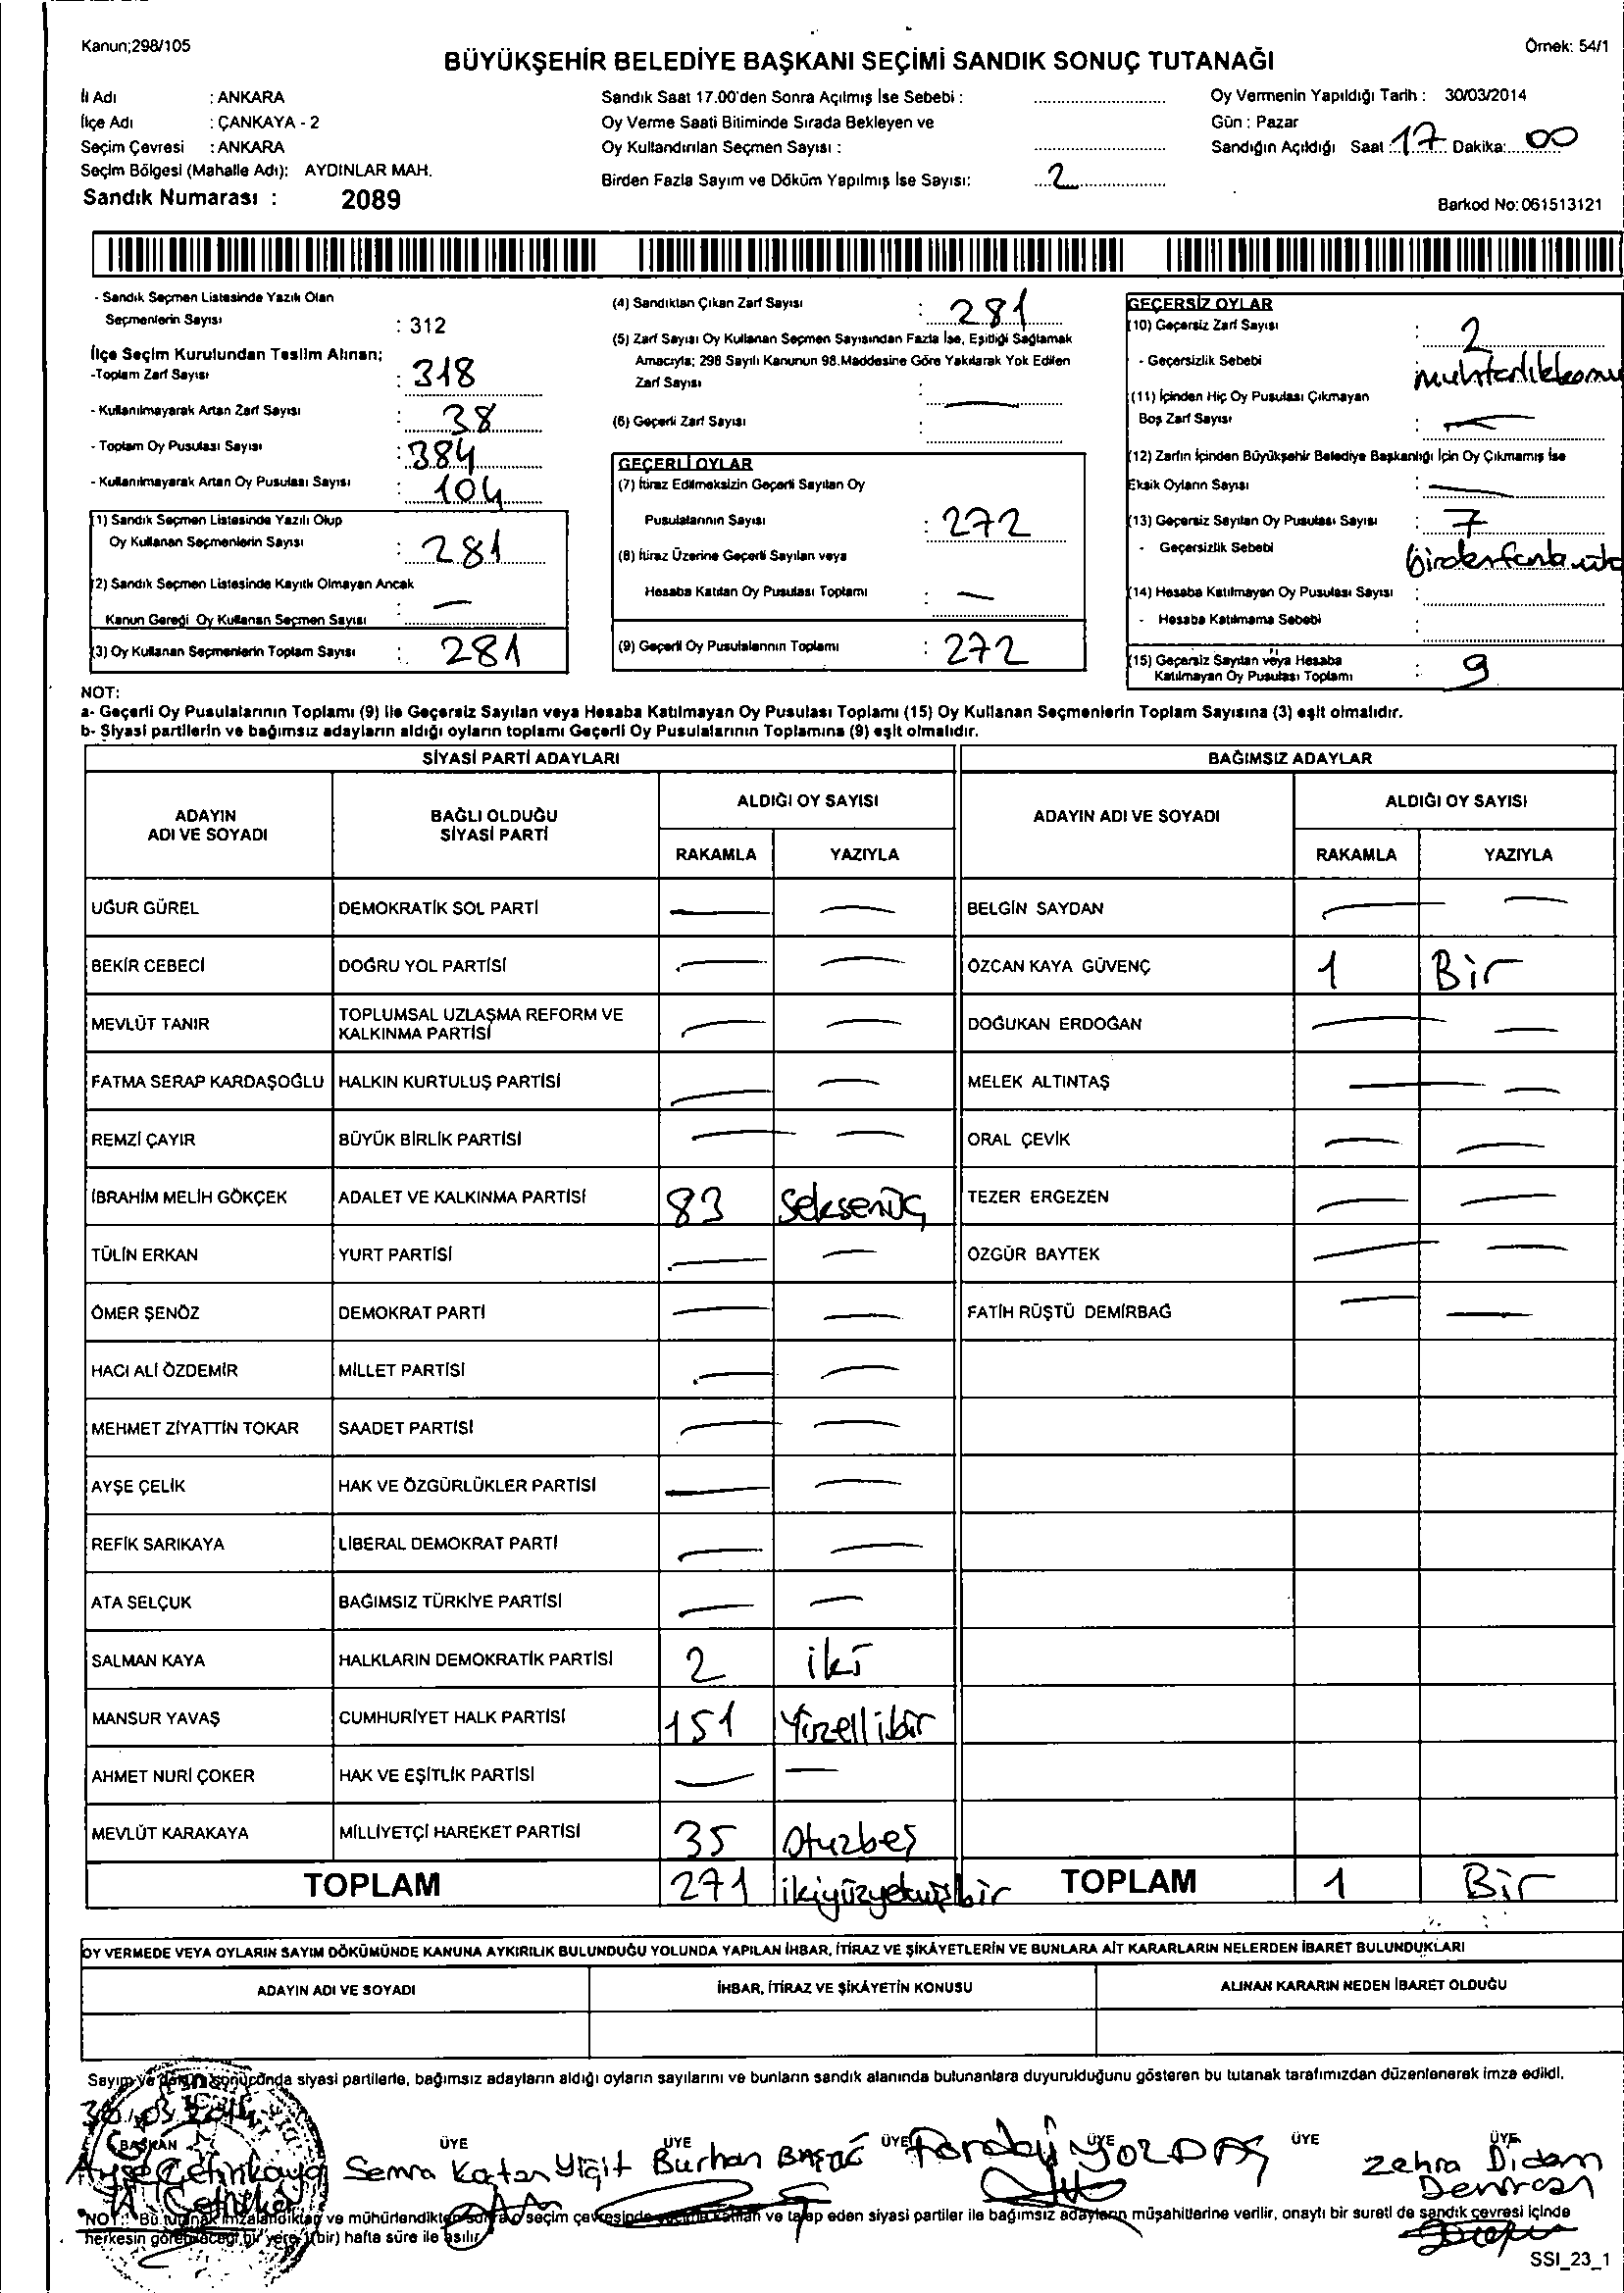 Kanun;298/105
Örnek: 54/1
BÜYÜKŞEHİR BELEDİYE BAŞKANI SEÇİMİ SANDIK SONUÇ TUTANAĞI
İl Adı : ANKARA
İlçe Adı : ÇANKAYA - 2
Seçim Çevresi : ANKARA
Seçim Bölgesi (Mahalle Adı): AYDINLAR MAH.
Sandık Numarası : 2089
Sandık Saat 17.00'den Sonra Açılmış İse Sebebi :
Oy Verme Saati Bitiminde Sırada Bekleyen ve
Oy Kullandırılan Seçmen Sayısı :
Birden Fazla Sayım ve Döküm Yapılmış İse Sayısı: 2
Oy Vermenin Yapıldığı Tarih : 30/03/2014
Gün : Pazar
Sandığın Açıldığı Saat : 17 Dakika: 00
Barkod No: 061513121
- Sandık Seçmen Listesinde Yazılı Olan
Seçmenlerin Sayısı : 312
İlçe Seçim Kurulundan Teslim Alınan;
-Toplam Zarf Sayısı : 318
- Kullanılmayarak Artan Zarf Sayısı : 38
- Toplam Oy Pusulası Sayısı : 384
- Kullanılmayarak Artan Oy Pusulası Sayısı : 104
(1) Sandık Seçmen Listesinde Yazılı Olup
Oy Kullanan Seçmenlerin Sayısı : 281
(2) Sandık Seçmen Listesinde Kayıtlı Olmayan Ancak
Kanun Gereği Oy Kullanan Seçmen Sayısı : —
(3) Oy Kullanan Seçmenlerin Toplam Sayısı : 281
(4) Sandıktan Çıkan Zarf Sayısı : 281
(5) Zarf Sayısı Oy Kullanan Seçmen Sayısından Fazla İse, Eşitliği Sağlamak
Amacıyla; 298 Sayılı Kanunun 98.Maddesine Göre Yakılarak Yok Edilen
Zarf Sayısı : —
(6) Geçerli Zarf Sayısı :
GEÇERLİ OYLAR
(7) İtiraz Edilmeksizin Geçerli Sayılan Oy
Pusulalarının Sayısı : 272
(8) İtiraz Üzerine Geçerli Sayılan veya
Hesaba Katılan Oy Pusulası Toplamı : —
(9) Geçerli Oy Pusulalarının Toplamı : 272
GEÇERSİZ OYLAR
(10) Geçersiz Zarf Sayısı : 2
- Geçersizlik Sebebi
(11) İçinden Hiç Oy Pusulası Çıkmayan
Boş Zarf Sayısı : —
(12) Zarfın İçinden Büyükşehir Belediye Başkanlığı İçin Oy Çıkmamış İse
Eksik Oyların Sayısı : —
(13) Geçersiz Sayılan Oy Pusulası Sayısı : 7
- Geçersizlik Sebebi birden fazla
(14) Hesaba Katılmayan Oy Pusulası Sayısı :
- Hesaba Katılmama Sebebi :
(15) Geçersiz Sayılan veya Hesaba
Katılmayan Oy Pusulası Toplamı : 9
NOT:
a- Geçerli Oy Pusulalarının Toplamı (9) ile Geçersiz Sayılan veya Hesaba Katılmayan Oy Pusulası Toplamı (15) Oy Kullanan Seçmenlerin Toplam Sayısına (3) eşit olmalıdır.
b- Siyasi partilerin ve bağımsız adayların aldığı oyların toplamı Geçerli Oy Pusulalarının Toplamına (9) eşit olmalıdır.
SİYASİ PARTİ ADAYLARI
ADAYIN ADI VE SOYADI
BAĞLI OLDUĞU SİYASİ PARTİ
ALDIĞI OY SAYISI
RAKAMLA YAZIYLA
UĞUR GÜREL DEMOKRATİK SOL PARTİ — —
BEKİR CEBECİ DOĞRU YOL PARTİSİ — —
MEVLÜT TANIR TOPLUMSAL UZLAŞMA REFORM VE KALKINMA PARTİSİ — —
FATMA SERAP KARDAŞOĞLU HALKIN KURTULUŞ PARTİSİ — —
REMZİ ÇAYIR BÜYÜK BİRLİK PARTİSİ — —
İBRAHİM MELİH GÖKÇEK ADALET VE KALKINMA PARTİSİ 83 Seksenüç
TÜLİN ERKAN YURT PARTİSİ — —
ÖMER ŞENÖZ DEMOKRAT PARTİ — —
HACI ALİ ÖZDEMİR MİLLET PARTİSİ — —
MEHMET ZİYATTİN TOKAR SAADET PARTİSİ — —
AYŞE ÇELİK HAK VE ÖZGÜRLÜKLER PARTİSİ — —
REFİK SARIKAYA LİBERAL DEMOKRAT PARTİ — —
ATA SELÇUK BAĞIMSIZ TÜRKİYE PARTİSİ — —
SALMAN KAYA HALKLARIN DEMOKRATİK PARTİSİ 2 iki
MANSUR YAVAŞ CUMHURİYET HALK PARTİSİ 151 Yüzellibir
AHMET NURİ ÇOKER HAK VE EŞİTLİK PARTİSİ — —
MEVLÜT KARAKAYA MİLLİYETÇİ HAREKET PARTİSİ 35 Otuzbeş
TOPLAM 271 ikiyüzyetmişbir
BAĞIMSIZ ADAYLAR
ADAYIN ADI VE SOYADI
ALDIĞI OY SAYISI
RAKAMLA YAZIYLA
BELGİN SAYDAN — —
ÖZCAN KAYA GÜVENÇ 1 Bir
DOĞUKAN ERDOĞAN — —
MELEK ALTINTAŞ — —
ORAL ÇEVİK — —
TEZER ERGEZEN — —
ÖZGÜR BAYTEK — —
FATİH RÜŞTÜ DEMİRBAĞ — —
TOPLAM 1 Bir
OY VERMEDE VEYA OYLARIN SAYIM DÖKÜMÜNDE KANUNA AYKIRILIK BULUNDUĞU YOLUNDA YAPILAN İHBAR, İTİRAZ VE ŞİKÂYETLERİN VE BUNLARA AİT KARARLARIN NELERDEN İBARET BULUNDUKLARI
ADAYIN ADI VE SOYADI İHBAR, İTİRAZ VE ŞİKÂYETİN KONUSU ALINAN KARARIN NEDEN İBARET OLDUĞU
Sayım ve döküm sonucunda siyasi partilerle, bağımsız adayların aldığı oyların sayılarını ve bunların sandık alanında bulunanlara duyurulduğunu gösteren bu tutanak tarafımızdan düzenlenerek imza edildi.
30.03.2014
BAŞKAN ÜYE ÜYE ÜYE ÜYE ÜYE ÜYE
Ayşe Çetinkaya Semra Katan Yiğit Burhan YOLDAŞ Zehra Didem
NOT: Bu tutanak imzalandıktan ve mühürlendikten sonra o seçim çevresinde seçime katılan ve talep eden siyasi partiler ile bağımsız adayların müşahitlerine verilir, onaylı bir sureti de sandık çevresi içinde
herkesin görebileceği bir yere (bir) hafta süre ile asılır.
SSI_23_1